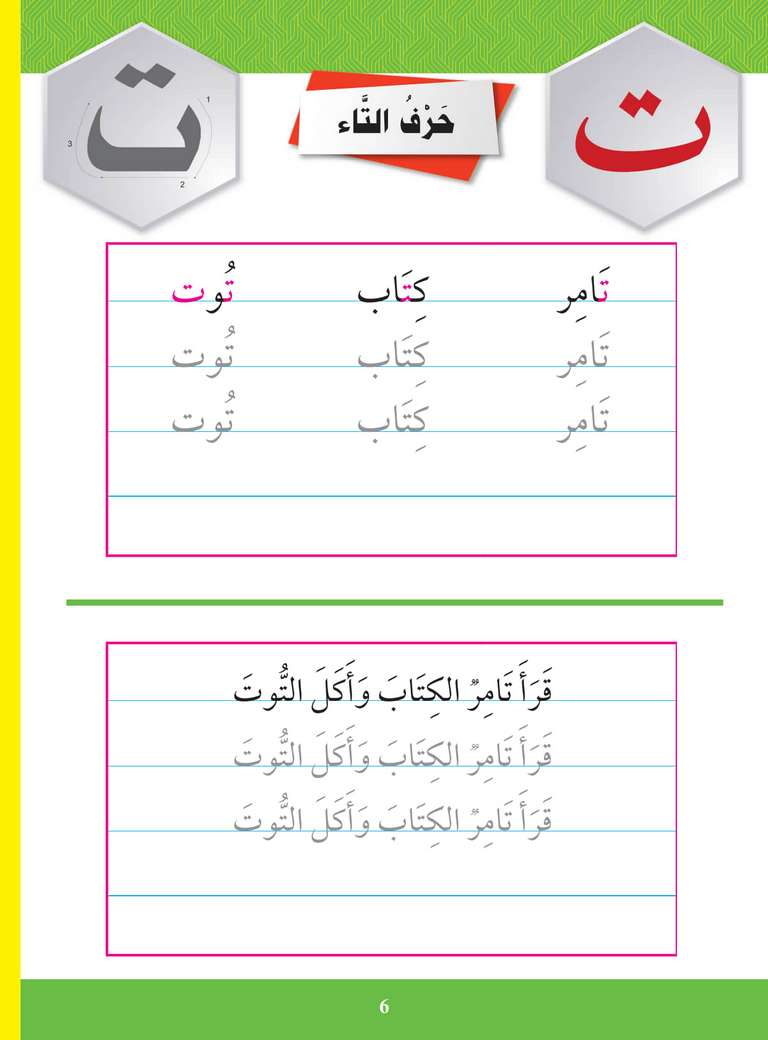 ت
حَرْفُ التَّاء
ت
1
2
3
تَامِر كِتَاب تُوت
تَامِر كِتَاب تُوت
تَامِر كِتَاب تُوت
قَرَأَ تَامِرٌ الكِتَابَ وَأَكَلَ التُّوتَ
قَرَأَ تَامِرٌ الكِتَابَ وَأَكَلَ التُّوتَ
قَرَأَ تَامِرٌ الكِتَابَ وَأَكَلَ التُّوتَ
6